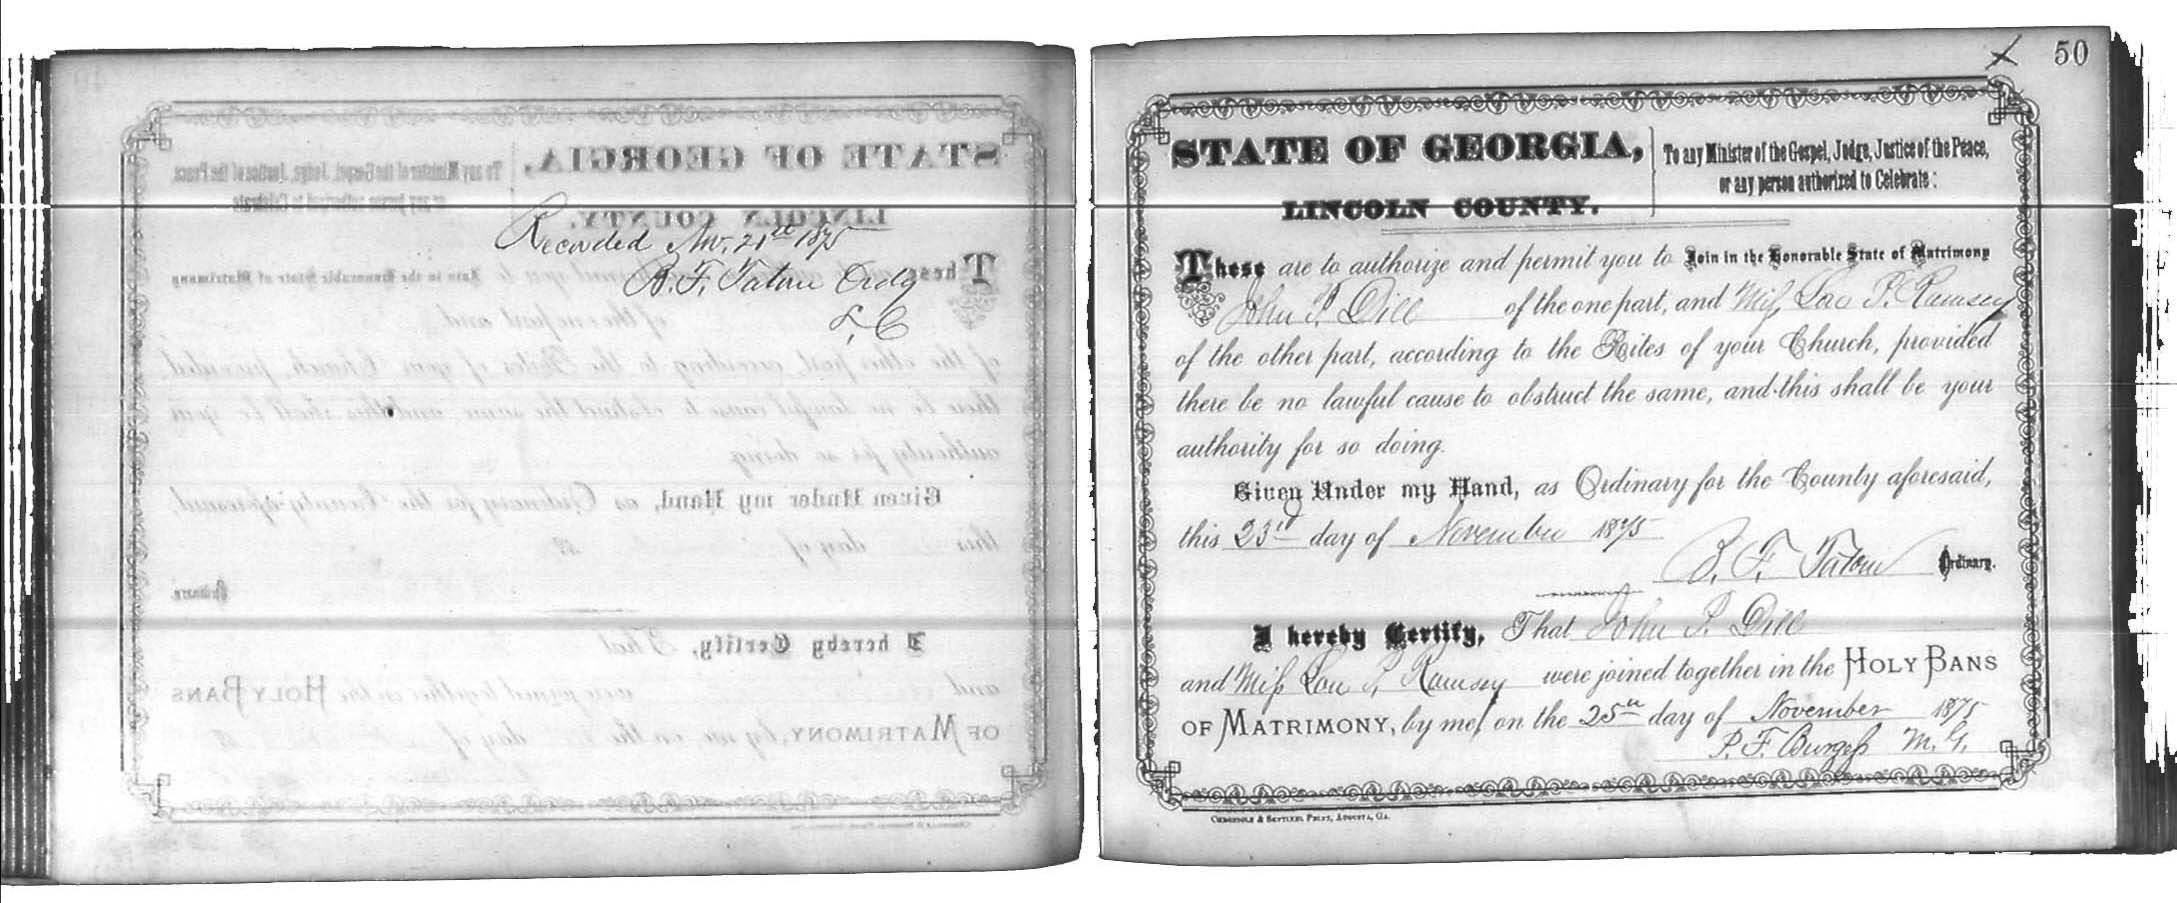 Recorded Nov. 21st 1875
B. F. Tatom Ordy
L, C
50
STATE OF GEORGIA,
LINCOLN COUNTY.
To any Minister of the Gospel, Judge, Justice of the Peace,
or any person authorized to Celebrate:
These are to authorize and permit you to Join in the Honorable State of Matrimony
John P. Dill of the one part, and Miss Lou P. Ramsey
of the other part, according to the Rites of your Church, provided
there be no lawful cause to obstruct the same, and this shall be your
authority for so doing.
Given Under my Hand, as Ordinary for the County aforesaid,
this 23rd day of November 1875
B. F. Tatom Ordinary.
I hereby Certify, That John P. Dill
and Miss Lou P. Ramsey were joined together in the HOLY BANS
OF MATRIMONY, by me, on the 25th day of November 1875
P. F. Burgess M. G.
PRINT, AUGUSTA, GA.